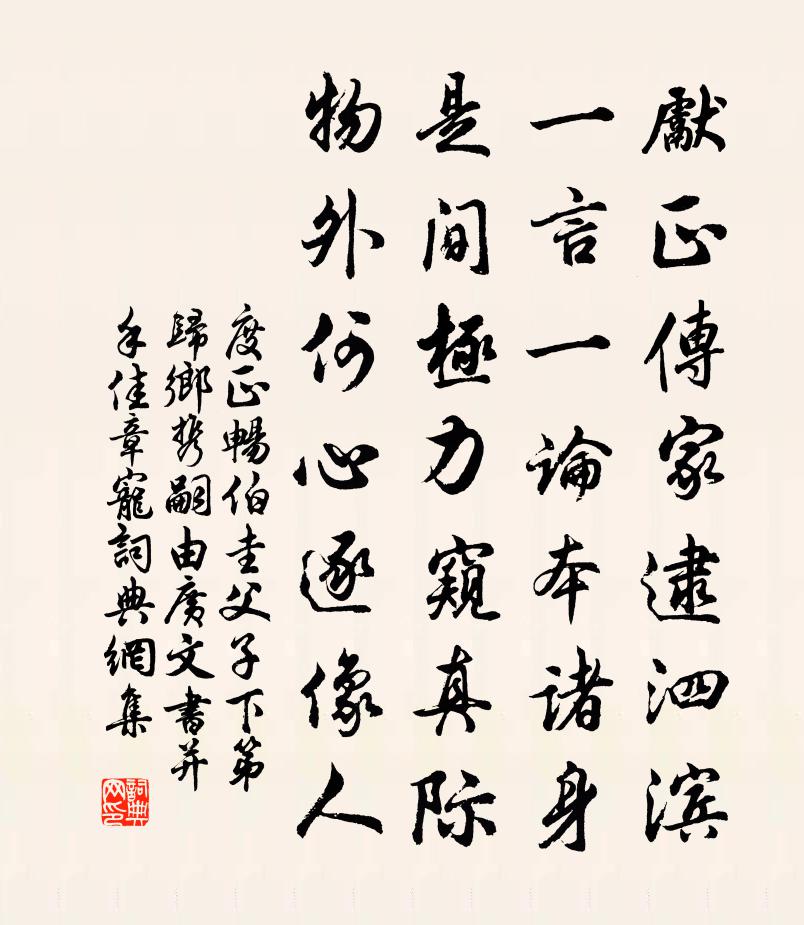 獻正傳家逮泗濱
一言一論本諸身
是间極力窺真际
物外何心逐像人
度正暢伯圭父子下第
歸鄉携嗣由廣文書并
手佳章寵詞典網集
詞典网印